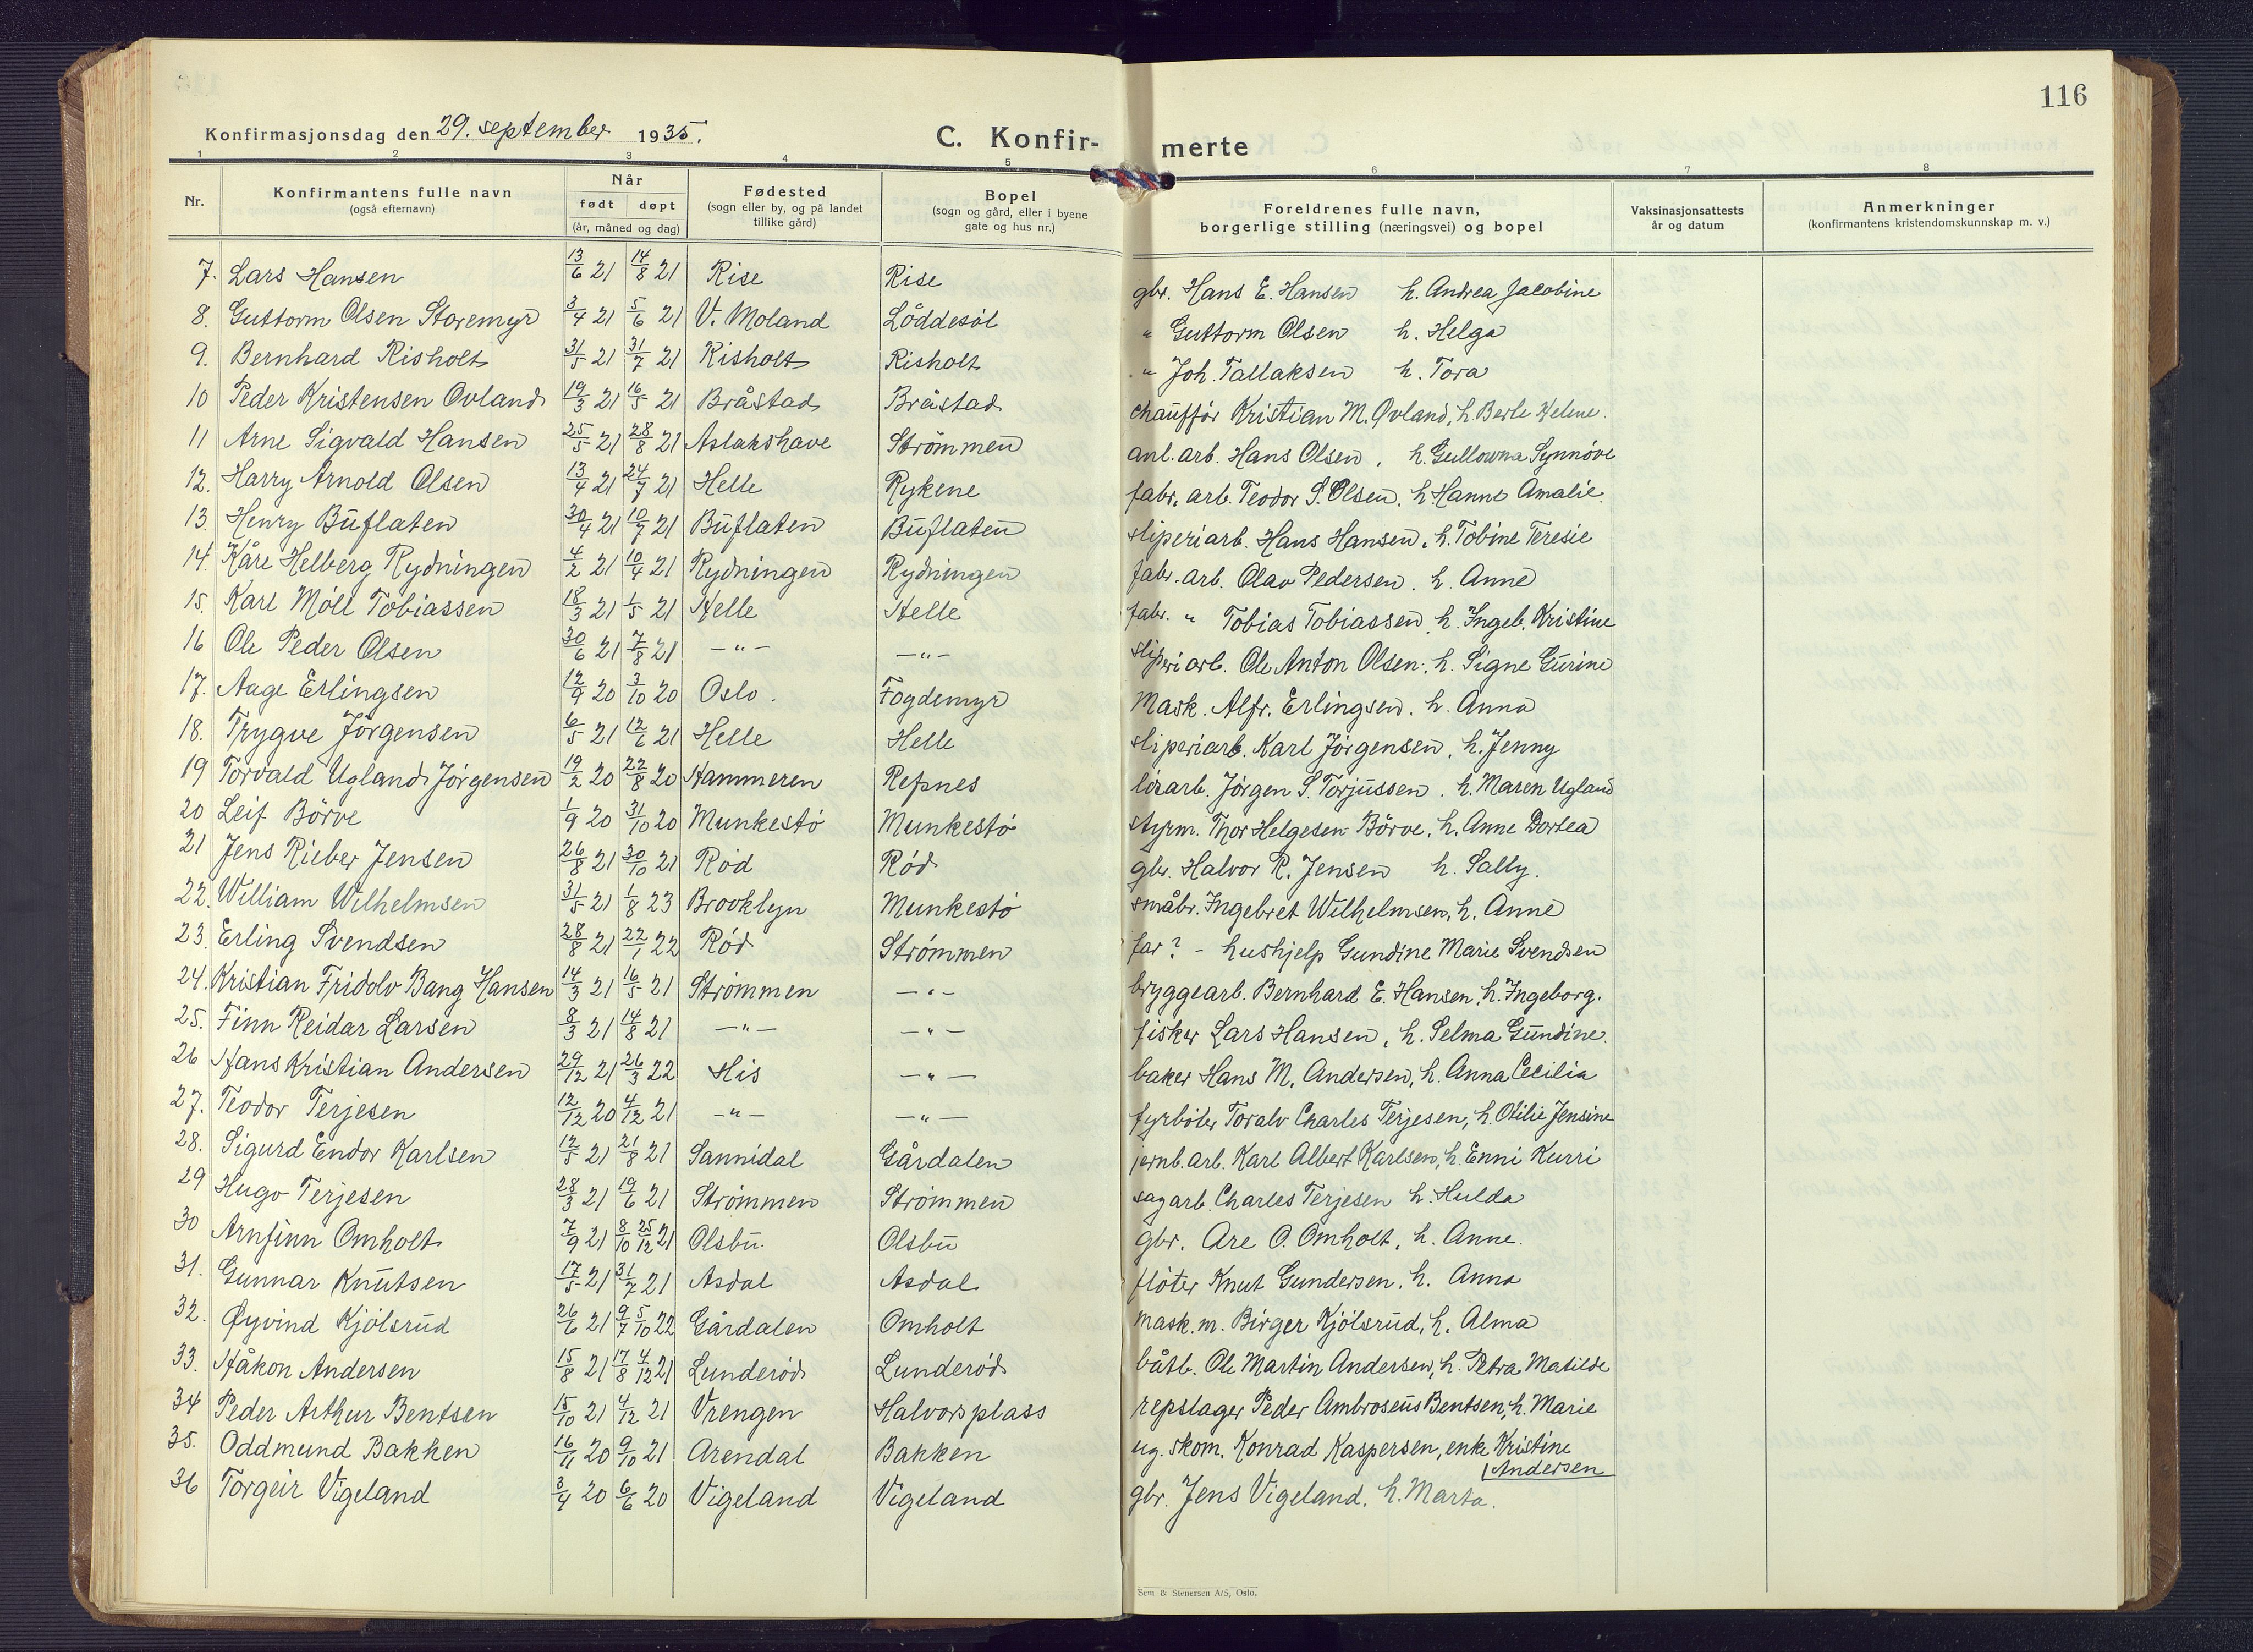 116
Konfirmasjonsdag den 29. september 1935.
C. Konfir-
merte
1 2 3 4 5 6 7 8
Nr.
Konfirmantens fulle navn
(også efternavn)
Når
født døpt
(år, måned og dag)
Fødested
(sogn eller by, og på landet
tillike gård)
Bopel
(sogn og gård, eller i byene
gate og hus nr.)
Foreldrenes fulle navn,
borgerlige stilling (næringsvei) og bopel
Vaksinasjonsattests
år og datum
Anmerkninger
(konfirmantens kristendomskunnskap m. v.)
7. Lars Hansen 13/6 21 14/8 21 Rise Rise gbr. Hans E. Hansen h. Andrea Jacobine
8. Guttorm Olsen Storemyr 3/4 21 5/6 21 V. Moland Löddesöl " Guttorm Olsen h. Helga
9. Bernhard Risholt 31/5 21 31/7 21 Risholt Risholt " Joh. Tallaksen h. Tora
10 Peder Kristensen Ovland 19/3 21 16/5 21 Bråstad Bråstad chauffør Kristian M. Øvland, h. Berle Helene.
11 Arne Sigvald Hansen 25/5 21 28/8 21 Aslakshave Strømmen anl. arb. Hans Olsen, h. Gullowna Synnöve
12. Harry Arnold Olsen 13/4 21 24/7 21 Helle Rykene fabr. arb. Teodor S. Olsen, h. Hanne Amalie.
13. Henry Buflaten 30/4 21 10/7 21 Buflaten Buflaten sliperiarb. Hans Hansen, h. Tobine Teresie
14. Kåre Helberg Rydningen 4/2 21 10/4 21 Rydningen Rydningen fabr. arb. Olav Pedersen. h. Anne
15. Karl Möll Tobiassen 18/3 21 1/5 21 Helle Helle fabr. " Tobias Tobiassen, h. Ingeb. Kristine
16 Ole Peder Olsen 30/6 21 7/8 21 - " - - " - sliperiarb. Ole Anton Olsen. h. Signe Gurine
17. Aage Erlingsen 12/9 20 3/10 20 Oslo. Fogdemyr Mask. Alfr. Erlingsen. h. Anna
18. Trygve Jörgensen 6/5 21 12/6 21 Helle Helle sliperiarb. Karl Jörgensen, h. Jenny
19 Torvald Ugland Jørgensen 19/2 20 22/8 20 Hammeren Refsnes lösarb. Jörgen S. Torjussen. h. Maren Ugland
20 Leif Börve 1/9 20 31/10 20 Munkestö Munkestö styrm. Thor Helgesen Börve, h. Anne Dortea
21 Jens Rieber Jensen 26/8 21 30/10 21 Röd Röd gbr. Halvor R. Jensen h. Sally.
22. William Wilhelmsen 31/5 21 1/8 23 Brooklyn Munkestö småbr. Ingebret Wilhelmsen, h. Anne
23. Erling Svendsen 28/8 21 22/1 22 Röd Strømmen far? - hushjelp Gundine Marie Svendsen
24. Kristian Fridolv Bang Hansen 14/3 21 16/5 21 Strømmen - " - bryggearb. Bernhard E. Hansen, h. Ingeborg.
25. Finn Reidar Larsen 8/3 21 14/8 21 - " - - " - fisker Lars Hansen, h. Selma Gundine.
26 Hans Kristian Andersen 29/12 21 26/3 22 His - " - baker Hans M. Andersen, h. Anna Cecilia
27. Teodor Terjesen 12/12 20 4/12 21 - " - - " - fyrböter Toralv Charles Terjesen, h. Otilie Jensine
28. Sigurd Endor Karlsen 12/5 21 21/8 21 Sannidal Gårdalen jernb. arb. Karl Albert Karlsen, h. Enni Kurri
29 Hugo Terjesen 28/3 21 19/6 21 Strømmen Strømmen sagarb. Charles Terjesen h. Hulda
30 Arnfinn Omholt 7/9 21 8/10 25/12 21 Olsbu. Olsbu gbr. Are O. Omholt, h. Anne.
31. Gunnar Knutsen 17/5 21 31/7 21 Asdal Asdal flöter Knut Gundersen, h. Anna
32. Øyvind Kjölsrud 26/6 21 9/7 5/10 22 Gårdalen Omholt mask. m. Birger Kjölsrud, h. Alma
33. Håkon Andersen 15/8 21 17/8 4/12 21 Lunderöd Lunderöd båtb. Ole Martin Andersen, h. Petra Matilde
34 Peder Arthur Bentsen 15/10 21 4/12 21 Vrengen Halvorsplass repslager Peder Ambroseus Bentsen, h. Marie
35. Oddmund Bakken 16/11 20 9/10 21 Arendal Bakken ug. skom. Konrad Kaspersen, enke Kristine
Andersen
36 Torgeir Vigeland 3/4 20 6/6 20 Vigeland Vigeland gbr. Jens Vigeland, h. Marta.
Sem & Stenersen A/S, Oslo.